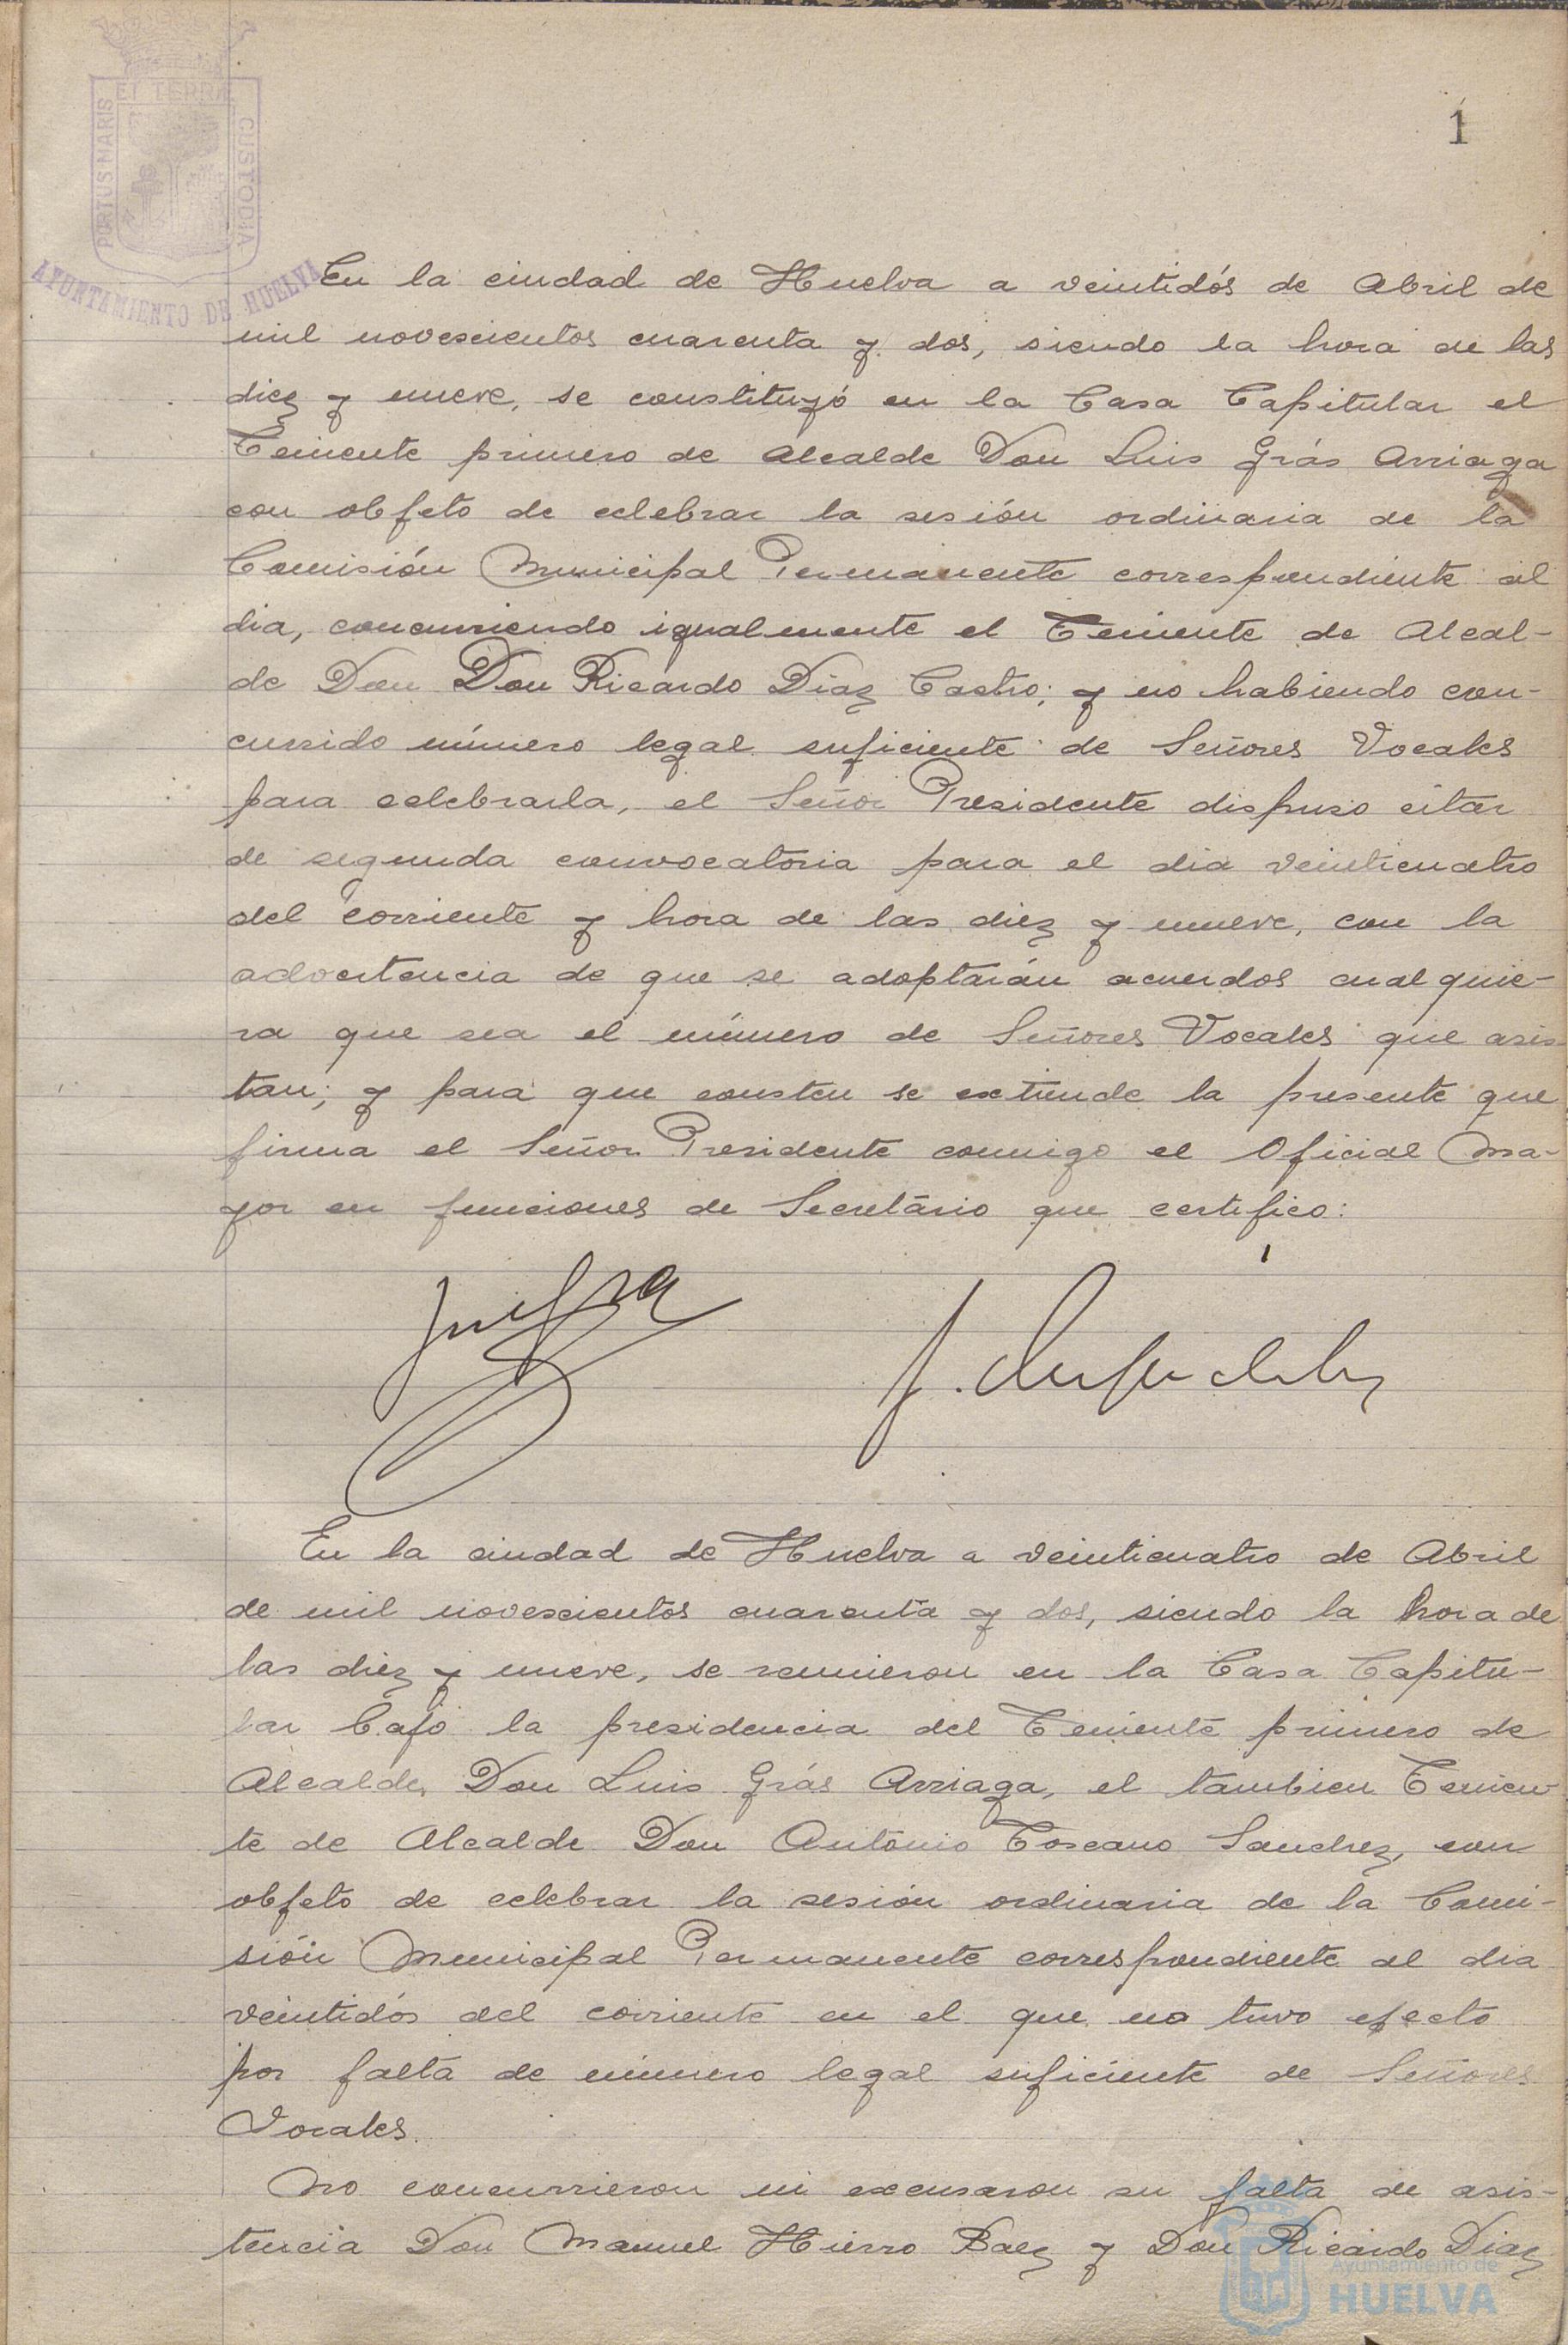 PORTUS MARIS ET TERRÆ CUSTODIA
AYUNTAMIENTO DE HUELVA
1
En la ciudad de Huelva a veintidós de Abril de
mil novescientos cuarenta y dos, siendo la hora de las
diez y nueve, se constituyó en la Casa Capitular el
Teniente primero de Alcalde Don Luis Grás Arriaga
con objeto de celebrar la sesión ordinaria de la
Comisión Municipal Permanente correspondiente al
dia, concurriendo igualmente el Teniente de Alcal-
de Don Don Ricardo Díaz Castro; y no habiendo con-
currido número legal suficiente de Señores Vocales
para celebrarla, el Señor Presidente dispuso citar
de segunda convocatoria para el dia veinticuatro
del corriente y hora de las diez y nueve, con la
advertencia de que se adoptarán acuerdos cualquie-
ra que sea el número de Señores Vocales que asis-
tan; y para que consten se extiende la presente que
firma el Señor Presidente conmigo el Oficial Ma-
yor en funciones de Secretário que certifico:
En la ciudad de Huelva a veinticuatro de Abril
de mil novescientos cuarenta y dos, siendo la hora de
las diez y nueve, se reunieron en la Casa Capitu-
lar bajo la presidencia del Teniente primero de
Alcalde, Don Luis Grás Arriaga, el tambien Tenien-
te de Alcalde Don António Toscano Sanchez, con
objeto de celebrar la sesión ordinaria de la Comi-
sión Municipal Permanente correspondiente al dia
veintidós del corriente en el que no tuvo efecto
por falta de número legal suficiente de Señores
Vocales.
No concurrieron ni excusaron su falta de asis-
tencia Don Manuel Hierro Baez y Don Ricardo Diaz
Ayuntamiento de
HUELVA